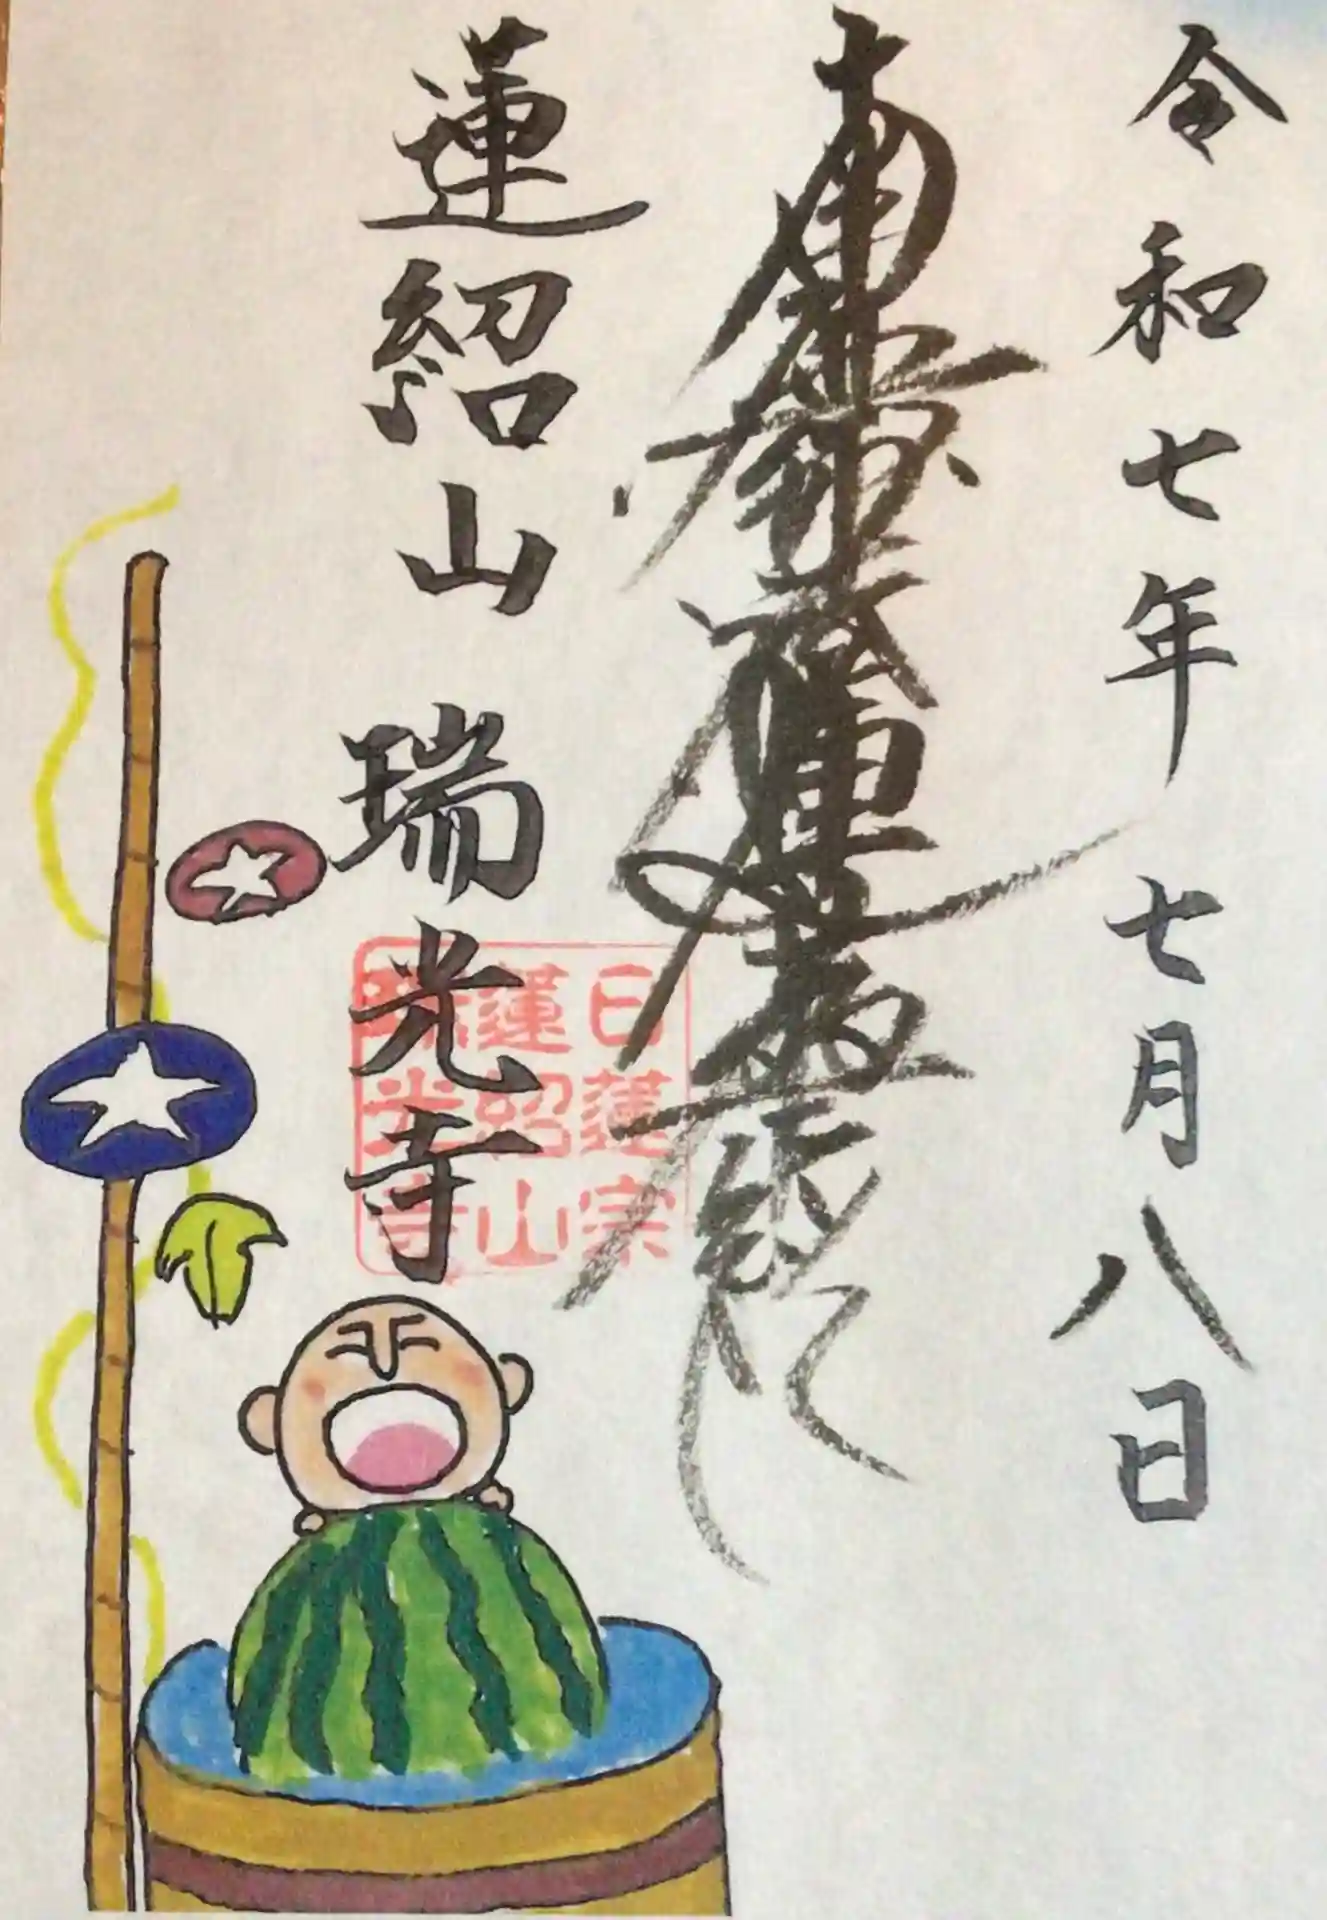 令和七年 七月八日
南無妙法蓮華経
蓮紹山 瑞光寺
日蓮宗
蓮紹山
瑞光寺